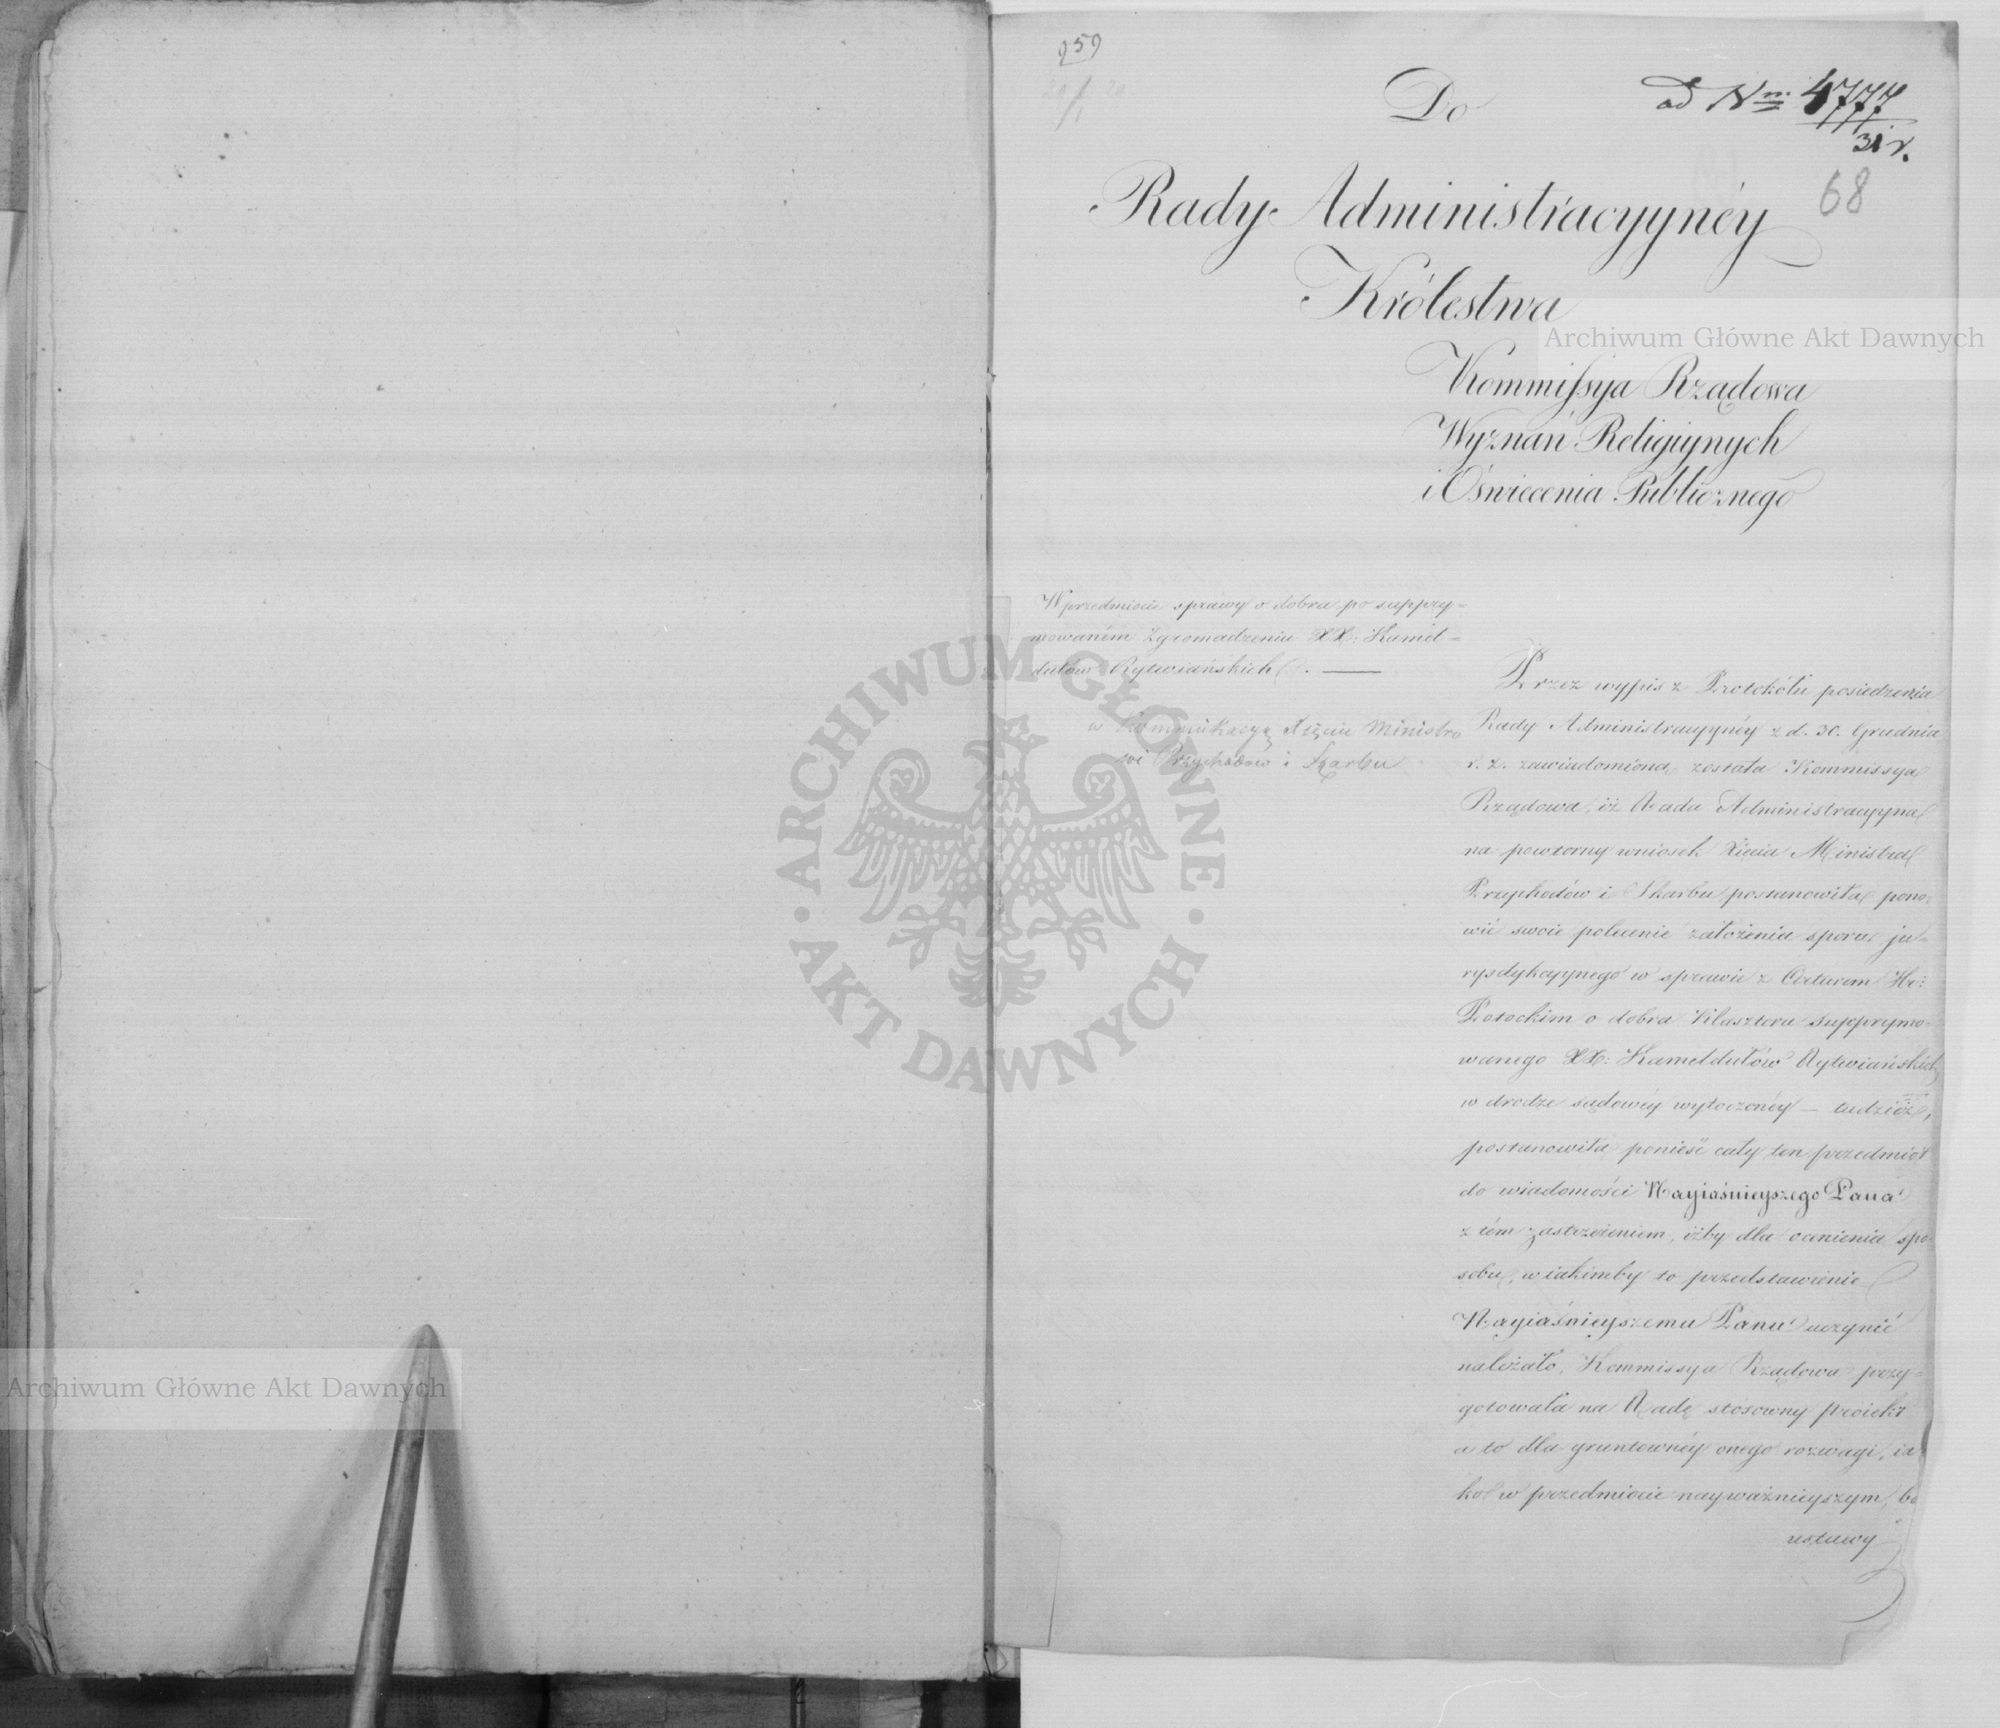 259
Do
ad Nm 4777
31 r.
68
Rady Administracyynéy
Królestwa
Kommissya Rządowa
Wyznań Religiynych
i Oświecenia Publicznego
W przedmiocie sprawy o dobra po suppry=
mowaném Zgromadzeniu XX: Kamel=
dułów Rytwiańskich. —
w Kommunikacyą Xięciu Ministro
wi Przychodów i Skarbu
Przez wypis z Protokółu posiedzenia
Rady Administracyynéy z d. 30. Grudnia
r. z. zawiadomiona została Kommissya
Rządowa, iż Rada Administracyyna
na powtórny wniosek Xięcia Ministra
Przychodów i Skarbu postanowiła pono-
wić swoie polecenie założenia sporu ju-
rysdykcyynego w sprawie z Arturem Hr:
Potockim o dobra Klasztoru supprymo-
wanego XX: Kameldułów Rytwiańskich
w drodze sądowéy wytoczonéy — tudzież,
postanowiła ponieść cały ten przedmiot
do wiadomości Nayiaśnieyszego Pana
z tém zastrzeżeniem, iżby dla ocenienia spo-
sobu, w iakimby to przedstawienie
Nayiaśnieyszemu Panu uczynić
należało, Kommissya Rządowa przy=
gotowała na Radę stosowny proiekt
a to dla gruntownéy onego rozwagi, ia
ko w przedmiocie nayważnieyszym, bo
ustawy
Archiwum Główne Akt Dawnych
Archiwum Główne Akt Dawnych
ARCHIWUM GŁÓWNE · AKT DAWNYCH ·